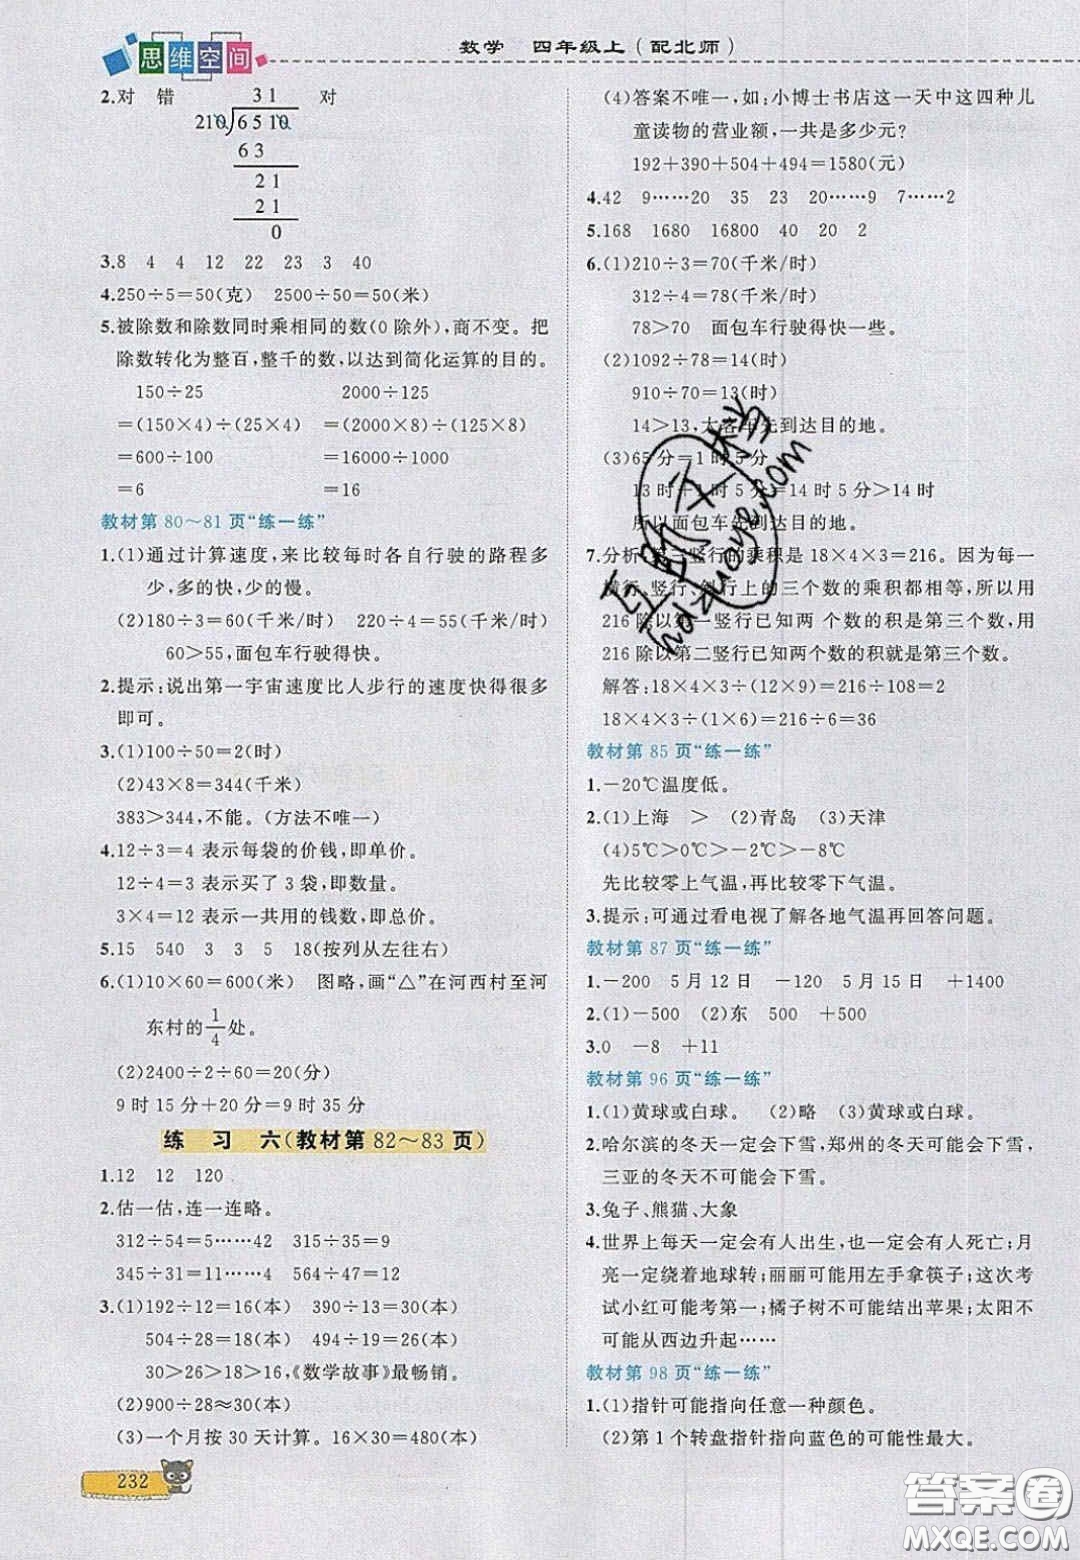 思维空间
数学 四年级上(配北师)
2.对 错 31 对
210 6510
63
21
21
0
3.8 4 4 12 22 23 3 40
4.250÷5=50(克) 2500÷50=50(米)
5.被除数和除数同时乘相同的数(0除外),商不变。把
除数转化为整百,整千的数,以达到简化运算的目的。
150÷25 2000÷125
=(150×4)÷(25×4) =(2000×8)÷(125×8)
=600÷100 =16000÷1000
=6 =16
教材第80~81页“练一练”
1.(1)通过计算速度,来比较每时各自行驶的路程多
少,多的快,少的慢。
(2)180÷3=60(千米/时) 220÷4=55(千米/时)
60>55,面包车行驶得快。
2.提示;说出第一宇宙速度比人步行的速度快得很多
即可。
3.(1)100÷50=2(时)
(2)43×8=344(千米)
383>344,不能。(方法不唯一)
4.12÷3=4 表示每袋的价钱,即单价。
12÷4=3 表示买了3袋,即数量。
3×4=12 表示一共用的钱数,即总价。
5.15 540 3 3 5 18(按列从左往右)
6.(1)10×60=600(米) 图略,画“△”在河西村至河
东村的1/4处。
(2)2400÷2÷60=20(分)
9时15分+20分=9时35分
练 习 六(教材第82~83页)
1.12 12 120
2.估一估,连一连略。
312÷54=5……42 315÷35=9
345÷31=11……4 564÷47=12
3.(1)192÷12=16(本) 390÷13=30(本)
504÷28=18(本) 494÷19=26(本)
30>26>18>16,《数学故事》最畅销。
(2)900÷28≈30(本)
(3)一个月按30天计算。16×30=480(本)
232
(4)答案不唯一,如;小博士书店这一天中这四种儿
童读物的营业额,一共是多少元?
192+390+504+494=1580(元)
4.42 9……20 35 23 20……9 7……2
5.168 1680 16800 40 20 2
6.(1)210÷3=70(千米/时)
312÷4=78(千米/时)
78>70 面包车行驶得快一些。
(2)1092÷78=14(时)
910÷70=13(时)
14>13,大客车先到达目的地。
(3)65分=1时5分
13时+1时5分=14时5分>14时
所以面包车先到达目的地。
7.分析:第三竖行的乘积是18×4×3=216。因为每一
横行、竖行、斜行上的三个数的乘积都相等,所以用
216除以第一竖行已知两 个数的积是第三个数,用
216除以第二竖行已知两个数的积就是第三个数。
解答:18×4×3÷(12×9)=216÷108=2
18×4×3÷(1×6)=216÷6=36
教材第85页“练一练”
1.-20℃温度低。
2.(1)上海 > (2)青岛 (3)天津
(4)5℃>0℃>-2℃>-8℃
先比较零上气温,再比较零下气温。
3.提示;可通过看电视了解各地气温再回答问题。
教材第87页“练一练”
1.-200 5月12日 -120 5月15日 +1400
2.(1)-500 (2)东 500 +500
3.0 -8 +11
教材第96页“练一练”
1.(1)黄球或白球。 (2)略 (3)黄球或白球。
2.哈尔滨的冬天一定会下雪,郑州的冬天可能会下雪,
三亚的冬天不可能会下雪。
3.兔子、熊猫、大象
4.世界上每天一定会有人出生,也一定会有人死亡;月
亮一定绕着地球转;丽丽可能用左手拿筷子;这次考
试小红可能考第一;橘子树不可能结出苹果;太阳不
可能从西边升起……
教材第98页“练一练”
1.(1)指针可能指向任意一种颜色。
(2)第1个转盘指针指向蓝色的可能性最大。
答案圈
MXQE.COM